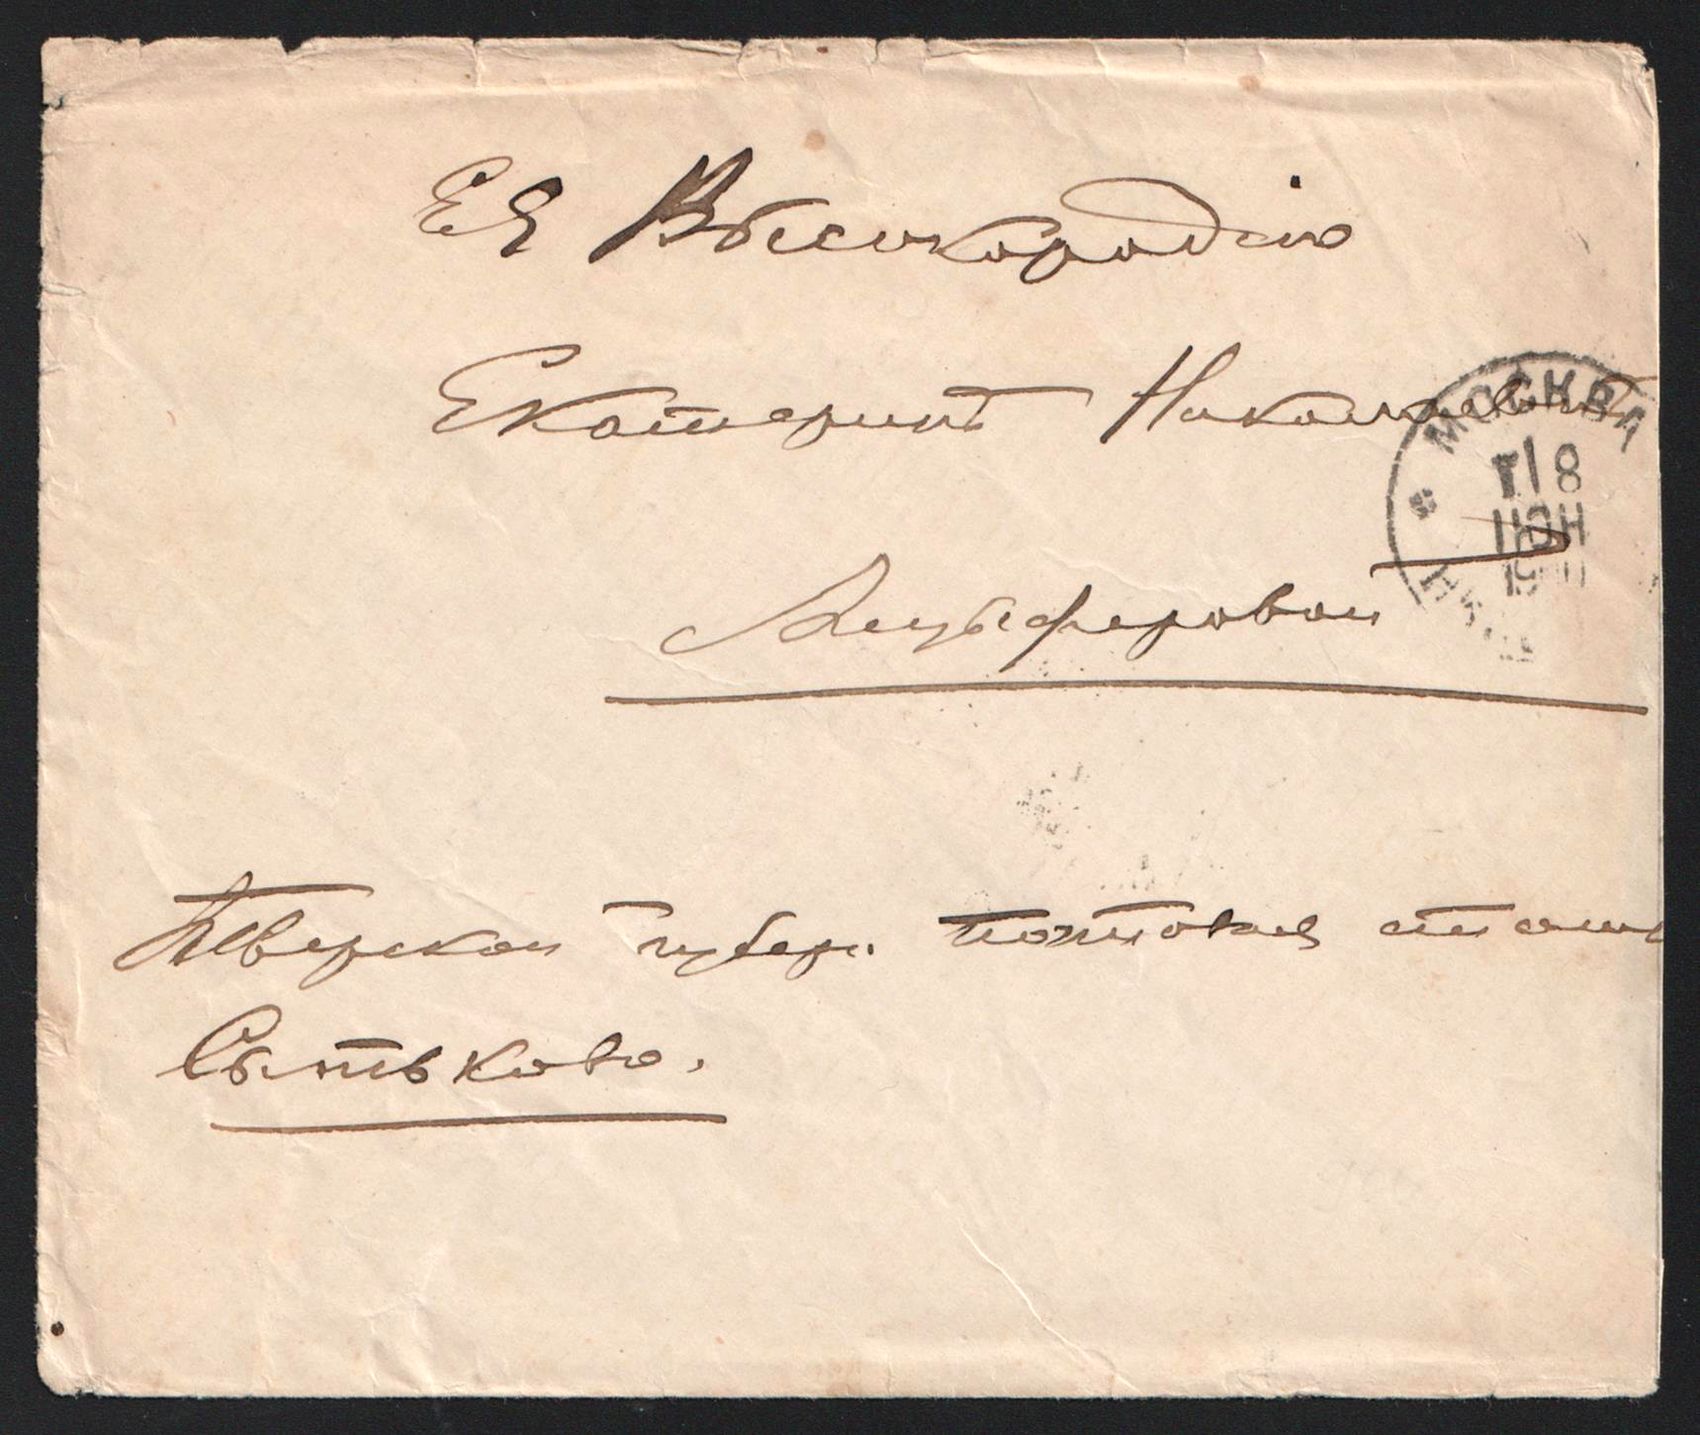 Ея Высокородію
Екатеринѣ Николаевнѣ
Анцыферовой
МОСКВА
18
ІЮН
Тверской губерн. почтовая станц
Сытьково.